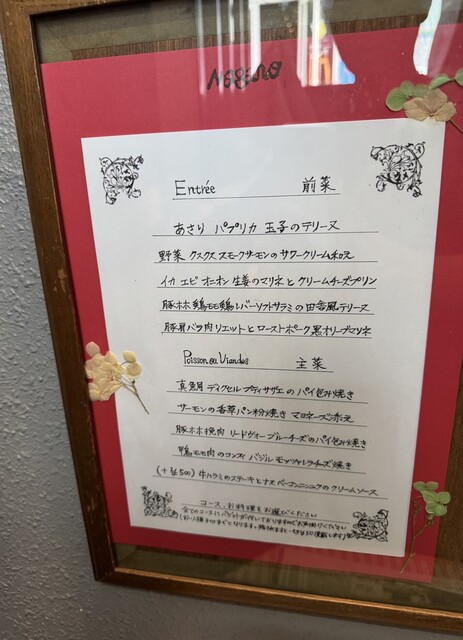 Entrée 前菜
あさり パプリカ 玉子のテリーヌ
野菜 クスクス スモークサーモンのサワークリーム和え
イカ エビ オニオン 生姜のマリネと クリームチーズプリン
豚ホホ 鶏モモ 鶏レバー ソフトサラミの田舎風テリーヌ
豚肩バラ肉リエットと ローストポーク 黒オリーブマリネ
Poisson ou Viandes 主菜
真鯛 デイクセル プティサザエの パイ包み焼き
サーモンの香草パン粉焼き マヨネーズ添え
豚ホホ挽肉 リードヴォー ブルーチーズのパイ包み焼き
鴨モモ肉のコンフィ バジル モッツァレラチーズ焼き
(+¥500) 牛ハラミのステーキとナス ベーコンニンニクのクリームソース
コース・お料理をお選びください
全てのコースにバゲットが付いておりますので お声掛けください